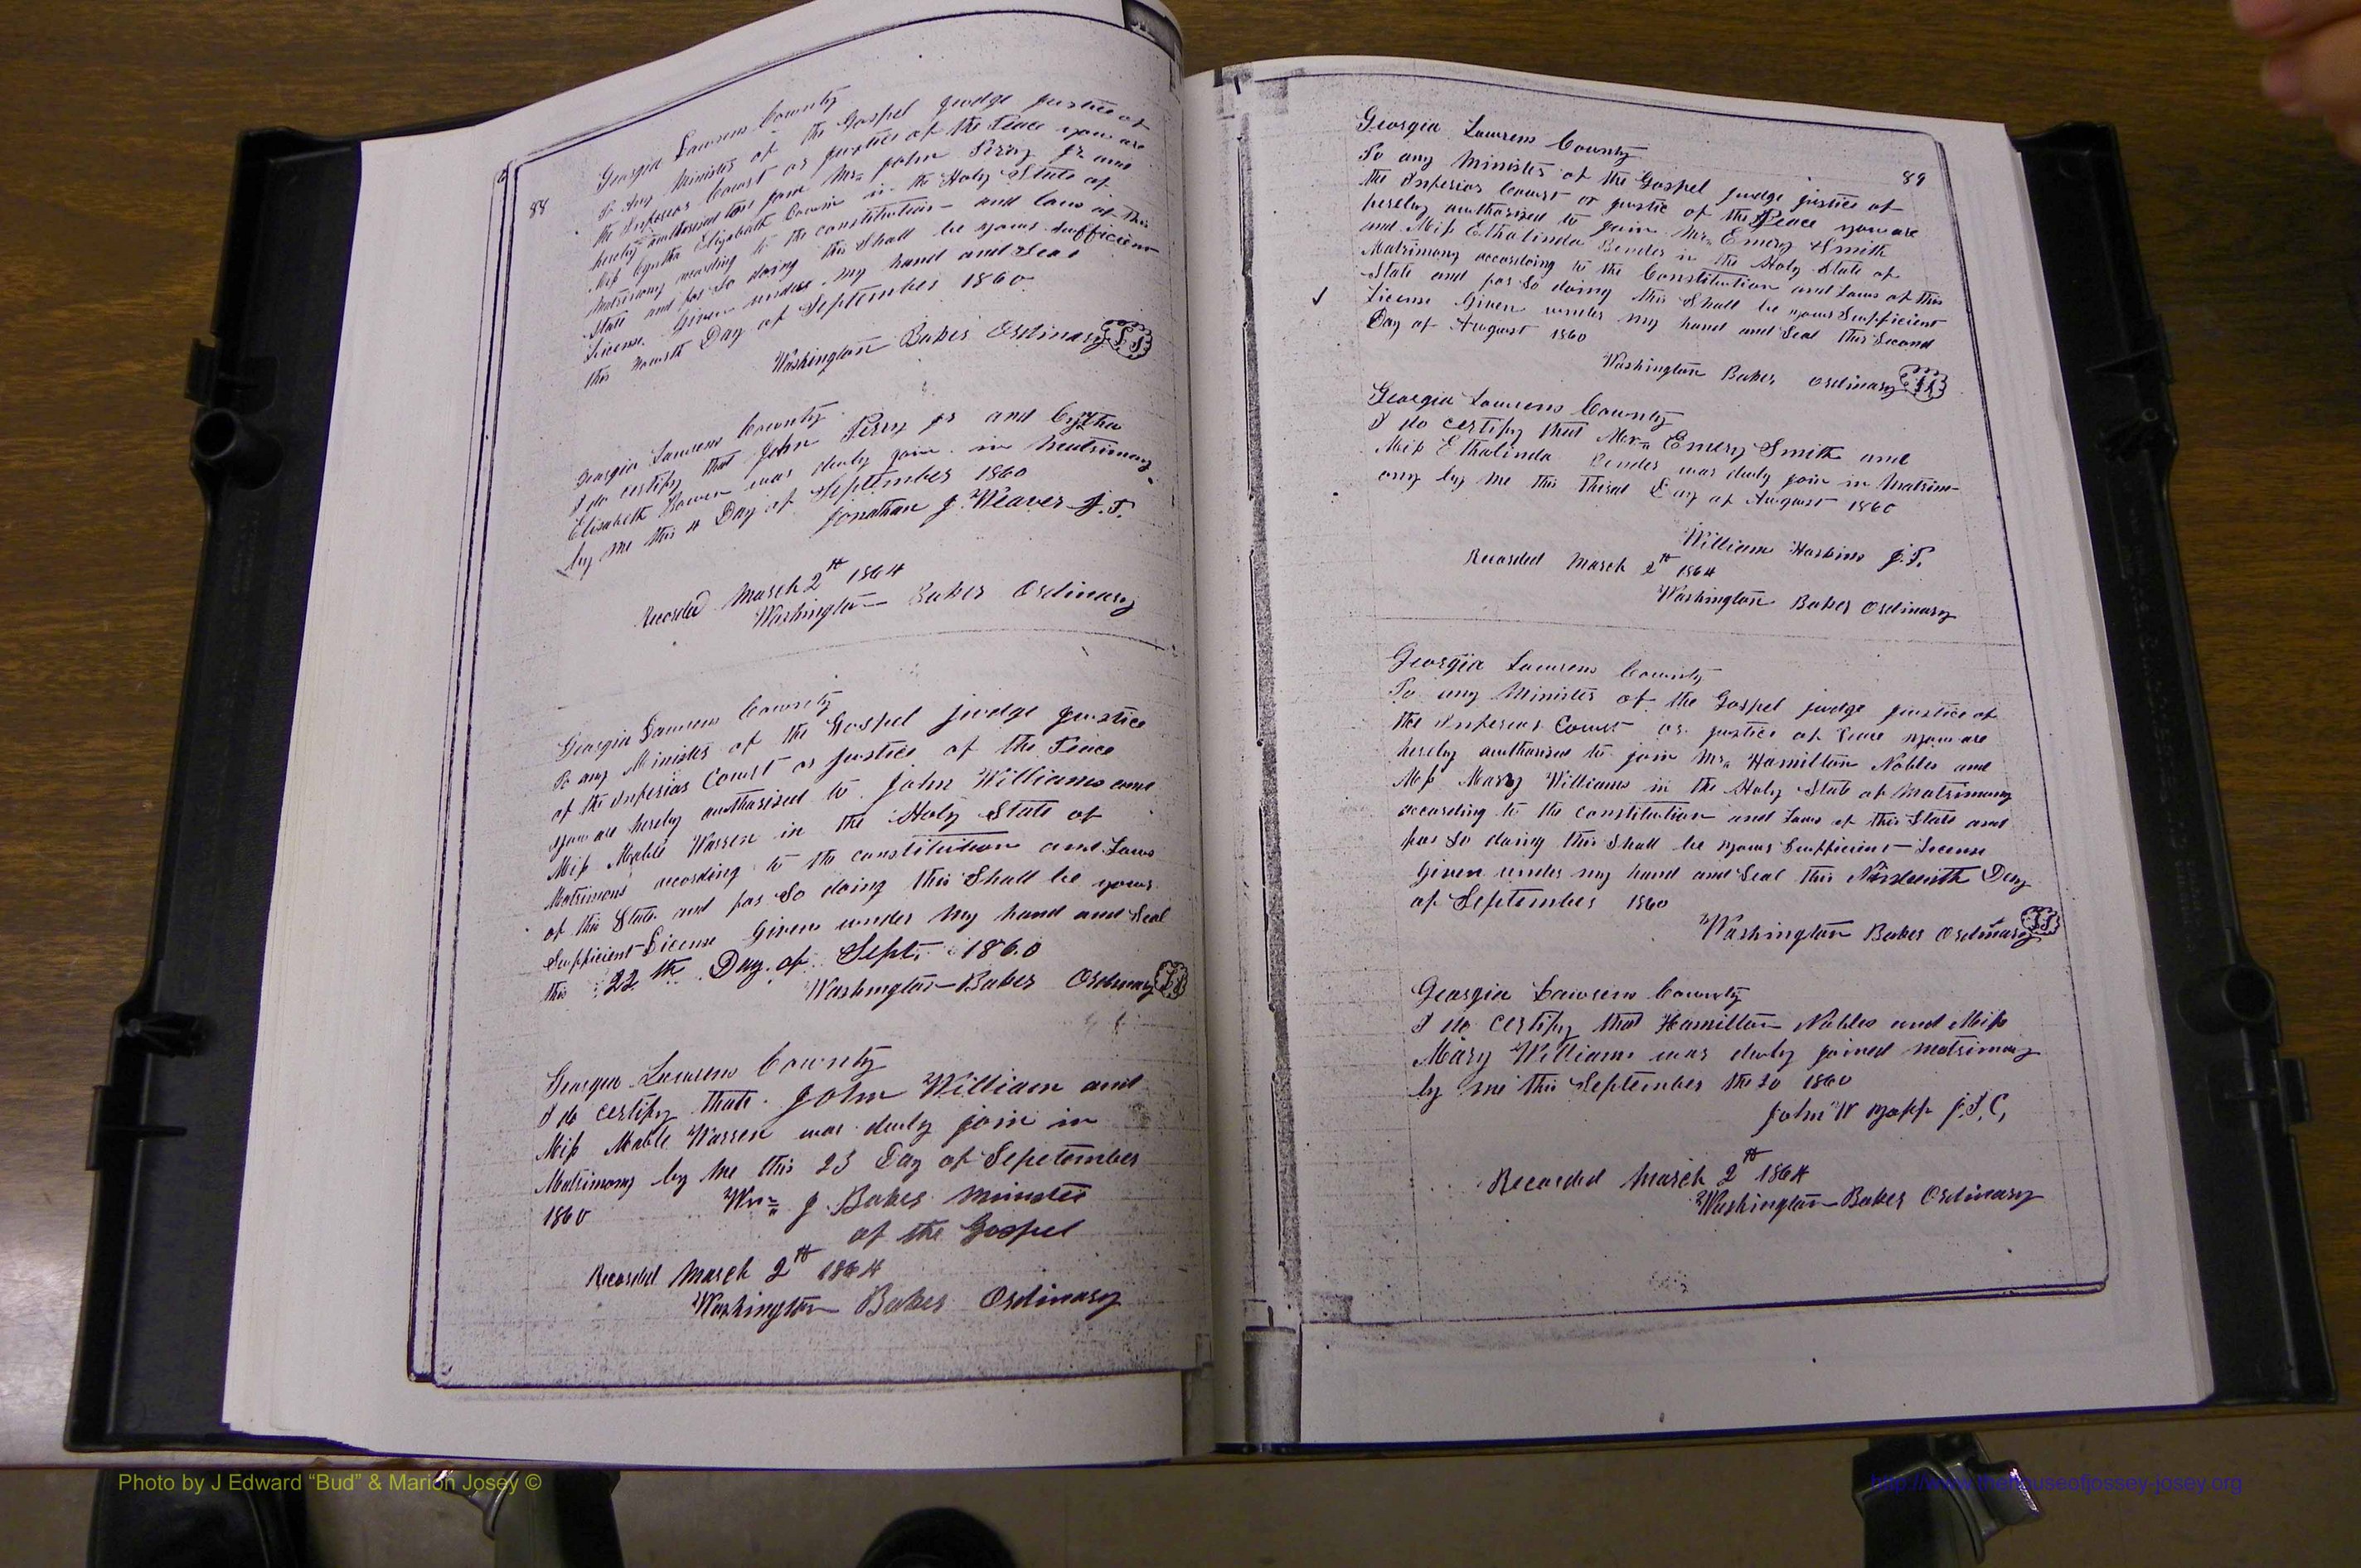 88
Georgia Laurens County
To Any Minister of the Gospel judge justice of
the Inferior Court or justice of the Peace you are
hereby authorised to join Mr. John Perry Jr and
Miss Cyntha Elizabeth Bowen in the Holy State of
Matrimony according to the constitution and laws of this
State and for So doing this Shall be yours Sufficient
License. Given under my hand and Seal
this Fourth Day of September 1860
Washington Baker Ordinary L S
Georgia Laurens County
I do certify that John Perry jr and Cyntha
Elisabeth Bowen was duly join in Matrimony
by me this 4 Day of September 1860
Jonathan J. Weaver J. P.
Recorded March 2th 1864
Washington Baker Ordinary
Georgia Laurens County
To any Minister of the Gospel judge justice
of the Inferior Court or justice of the Peace
you are hereby authorised to John Williams and
Miss Mable Warren in the Holy State of
Matrimony according to the constitution and Laws
of this State and for So doing this Shall be yours
Sufficient License Given under my hand and Seal
this 22 th Day of Sept. 1860
Washington Baker Ordinary L S
Georgia Laurens County
I do certify that John William and
Miss Mable Warren was duly join in
Matrimony by me this 23 Day of Sepetember
1860 Wm J. Baker minister
of the Gospel
Recorded March 2th 1864
Washington Baker Ordinary
89
Georgia Laurens County
To any Minister of the Gospel judge justice of
the Inferior Court or justic of the Peace you are
hereby authorised to join Mr. Emery Smith
and Miss Ethalinda Linder in the Holy State of
Matrimony according to the Constitution and Laws of this
State and for So doing this Shall be yours Sufficient
License Given under my hand and Seal this Second
Day of August 1860
Washington Baker Ordinary L S
Georgia Laurens County
I do certify that Mr. Emery Smith and
Miss Ethalinda Linder was duly join in Matrim-
ony by me this Third Day of August 1860
William Haskins J. P.
Recorded March 2th 1864
Washington Baker Ordinary
Georgia Laurens County
To any Minister of the Gospel judge justice of
the Inferior Court or justice of Peace you are
hereby authorised to join Mr. Hamilton Nobles and
Miss Mary Williams in the Holy State of Matrimony
according to the constitution and Laws of this State and
for So doing this Shall be yours Sufficient License
Given under my hand and Seal this Nineteenth Day
of September 1860
Washington Baker Ordinary L S
Georgia Laurens County
I do certify that Hamilton Nobles and Miss
Mary Williams was duly joined matrimony
by me this September the 20 1860
John W Yopp J. I. C,
Recorded March 2th 1864
Washington Baker Ordinary
Photo by J Edward “Bud” & Marion Josey ©
http://www.thehouseofjossey-josey.org